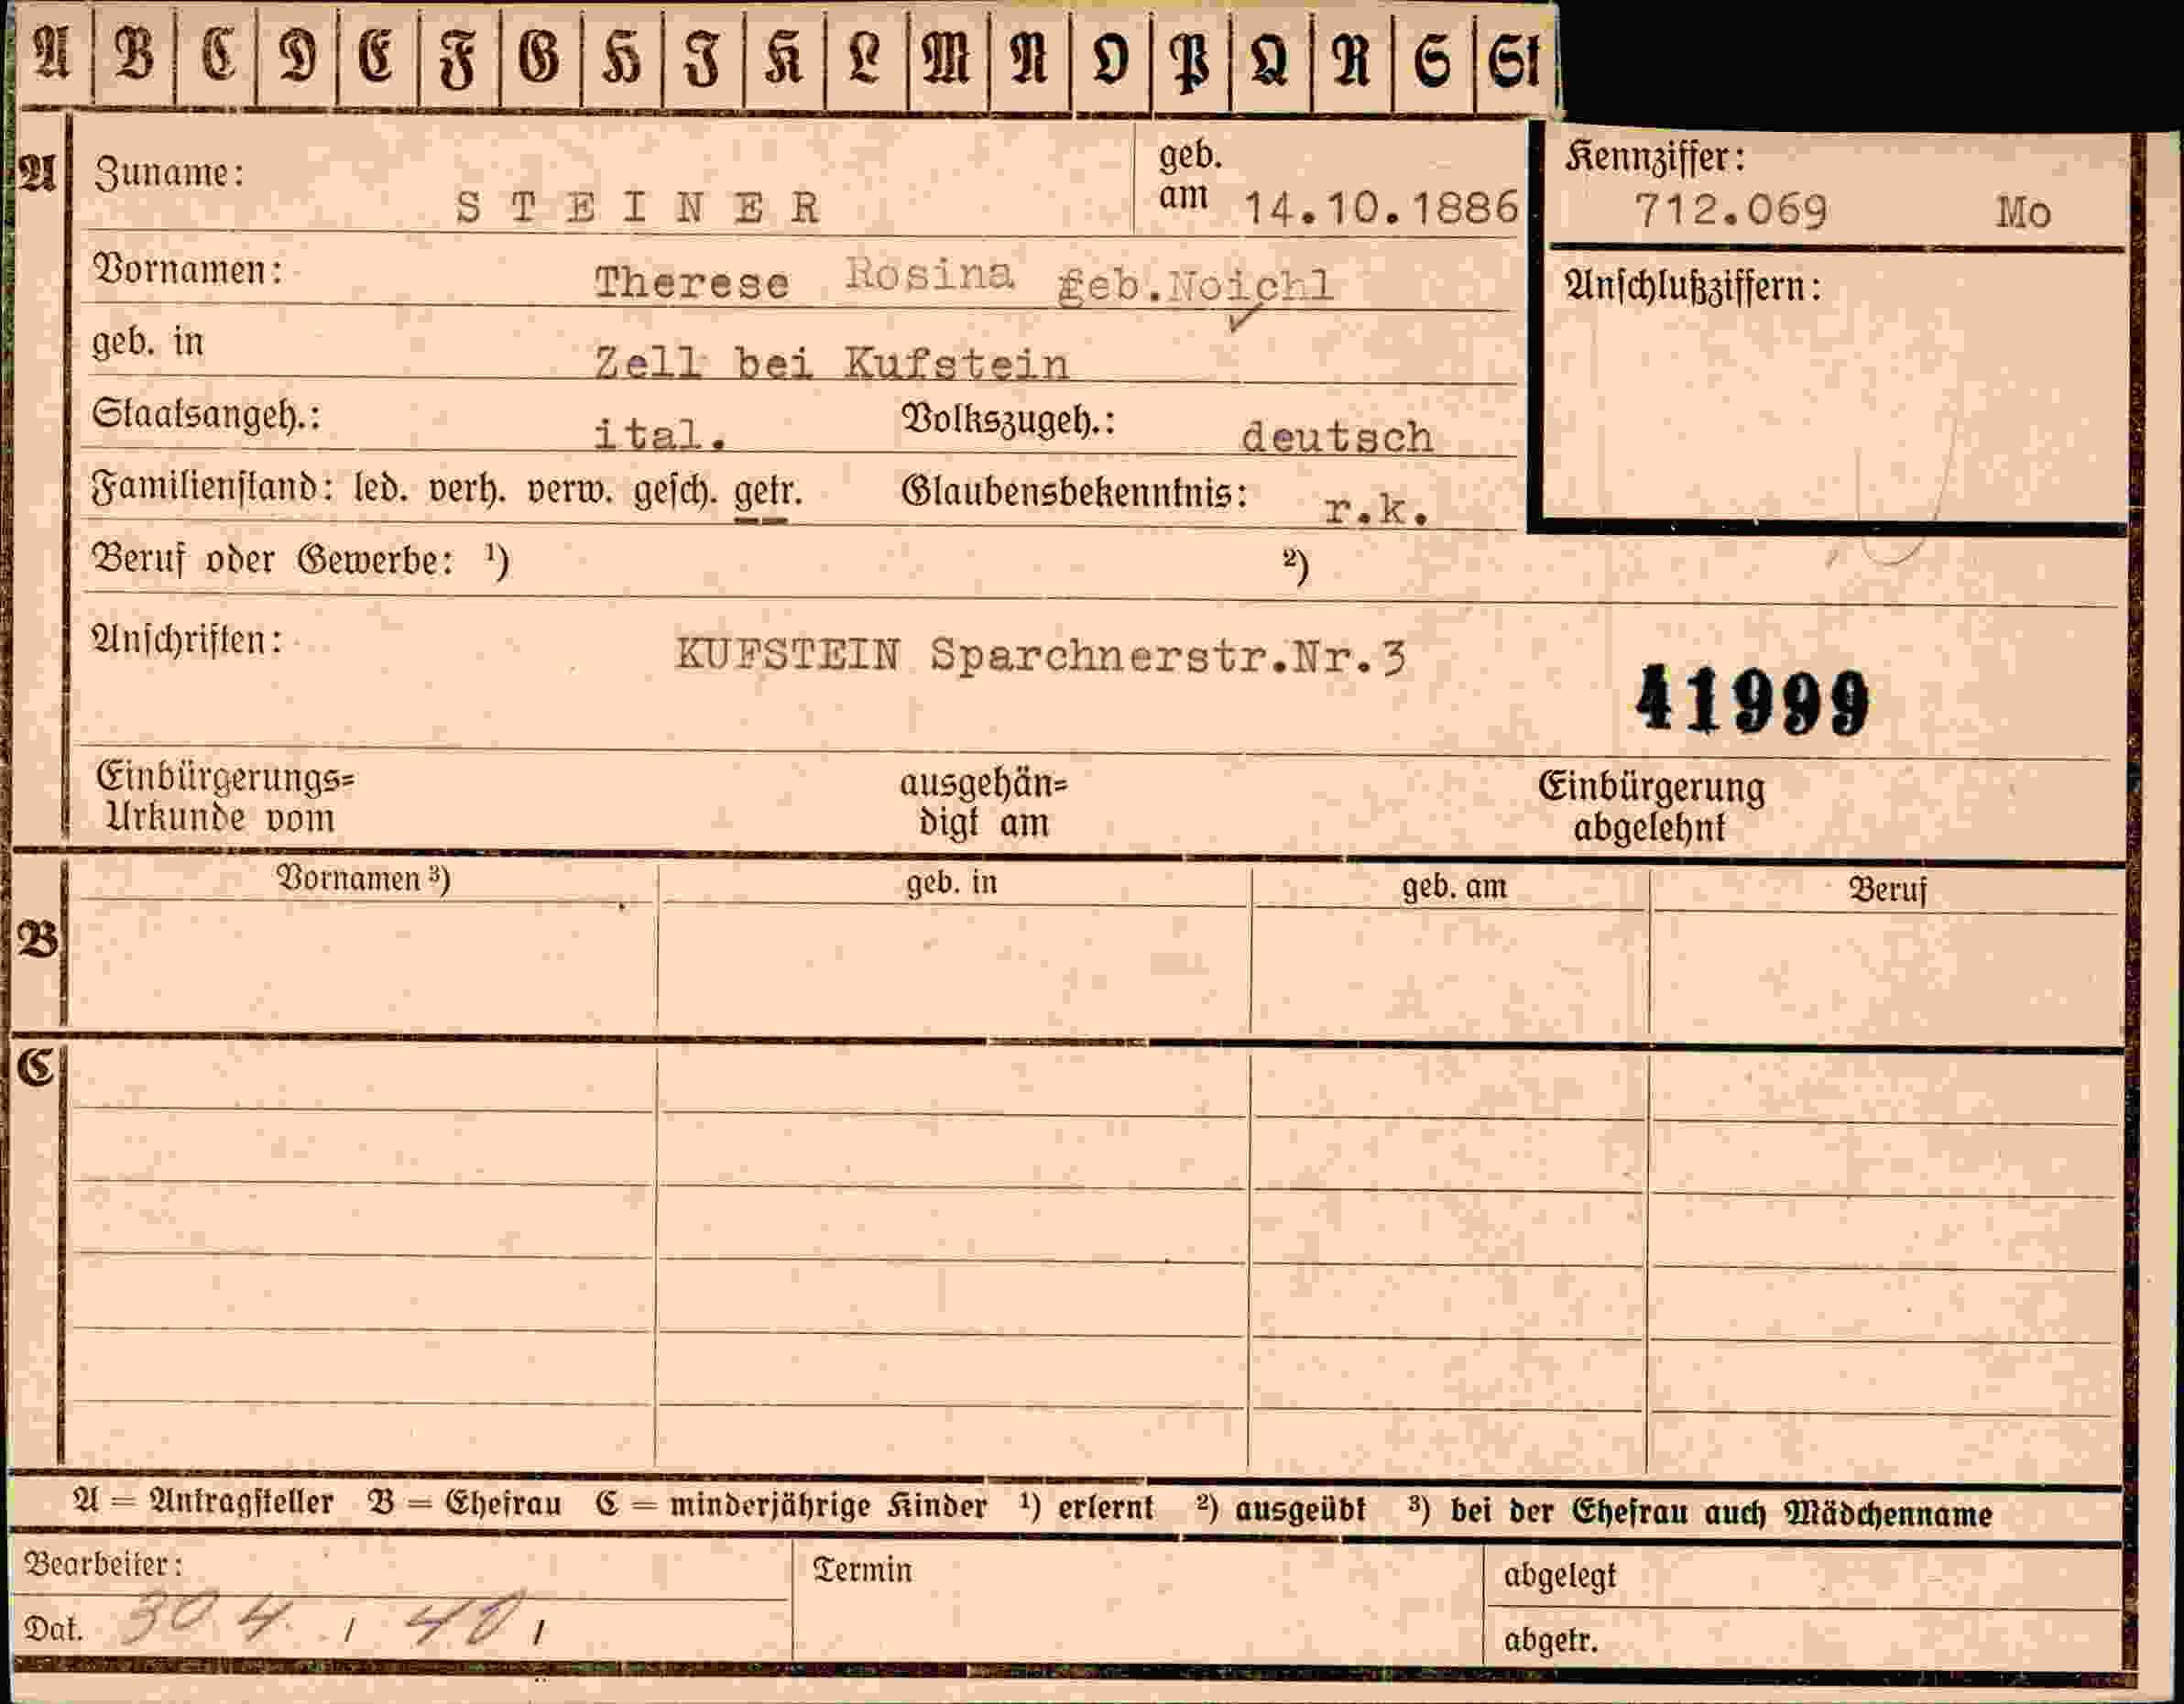 A B C D E F G H I K L M N O P Q R S St
A Zuname: STEINER geb. am 14.10.1886 Kennziffer: 712.069 Mo
Vornamen: Therese Rosina geb.Noichl Anschlußziffern:
geb. in Zell bei Kufstein
Staatsangeh.: ital. Volkszugeh.: deutsch
Familienstand: led. verh. verw. gesch. getr. Glaubensbekenntnis: r.k.
Beruf oder Gewerbe: ¹) ²)
Anschriften: KUFSTEIN Sparchnerstr.Nr.3
41999
Einbürgerungs= ausgehän= Einbürgerung
Urkunde vom digt am abgelehnt
Vornamen ³) geb. in geb. am Beruf
B
C
A = Antragsteller B = Ehefrau C = minderjährige Kinder ¹) erlernt ²) ausgeübt ³) bei der Ehefrau auch Mädchenname
Bearbeiter: Termin abgelegt
Dat. 30 4. / 40 / abgetr.